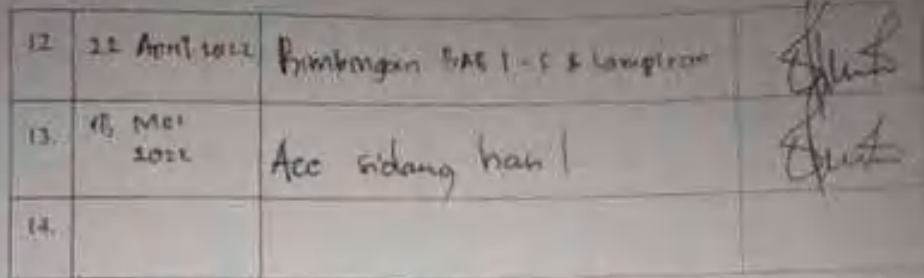 12 22 April 2022 Bimbingan BAB 1-5 & Lampiran
13. Mei
2022 Acc sidang hasil
14.